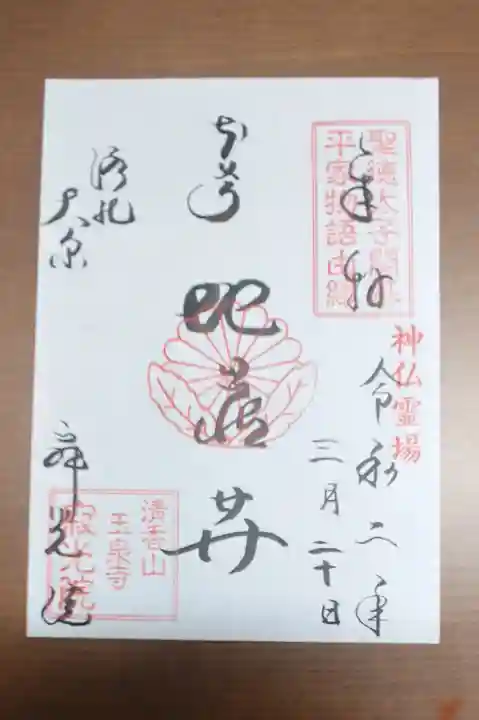 聖徳太子開基
平家物語由緒
奉拝
神仏霊場
令和二年
三月二十日
本尊
地蔵卄
洛北
大原
寂光院
清香山
玉泉寺
寂光院